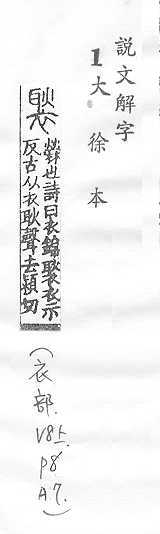 說文解字
1大徐本
褧
檾也詩曰衣錦褧衣示
反古从衣耿聲去穎切
(衣部. V8上. P8 A7.)